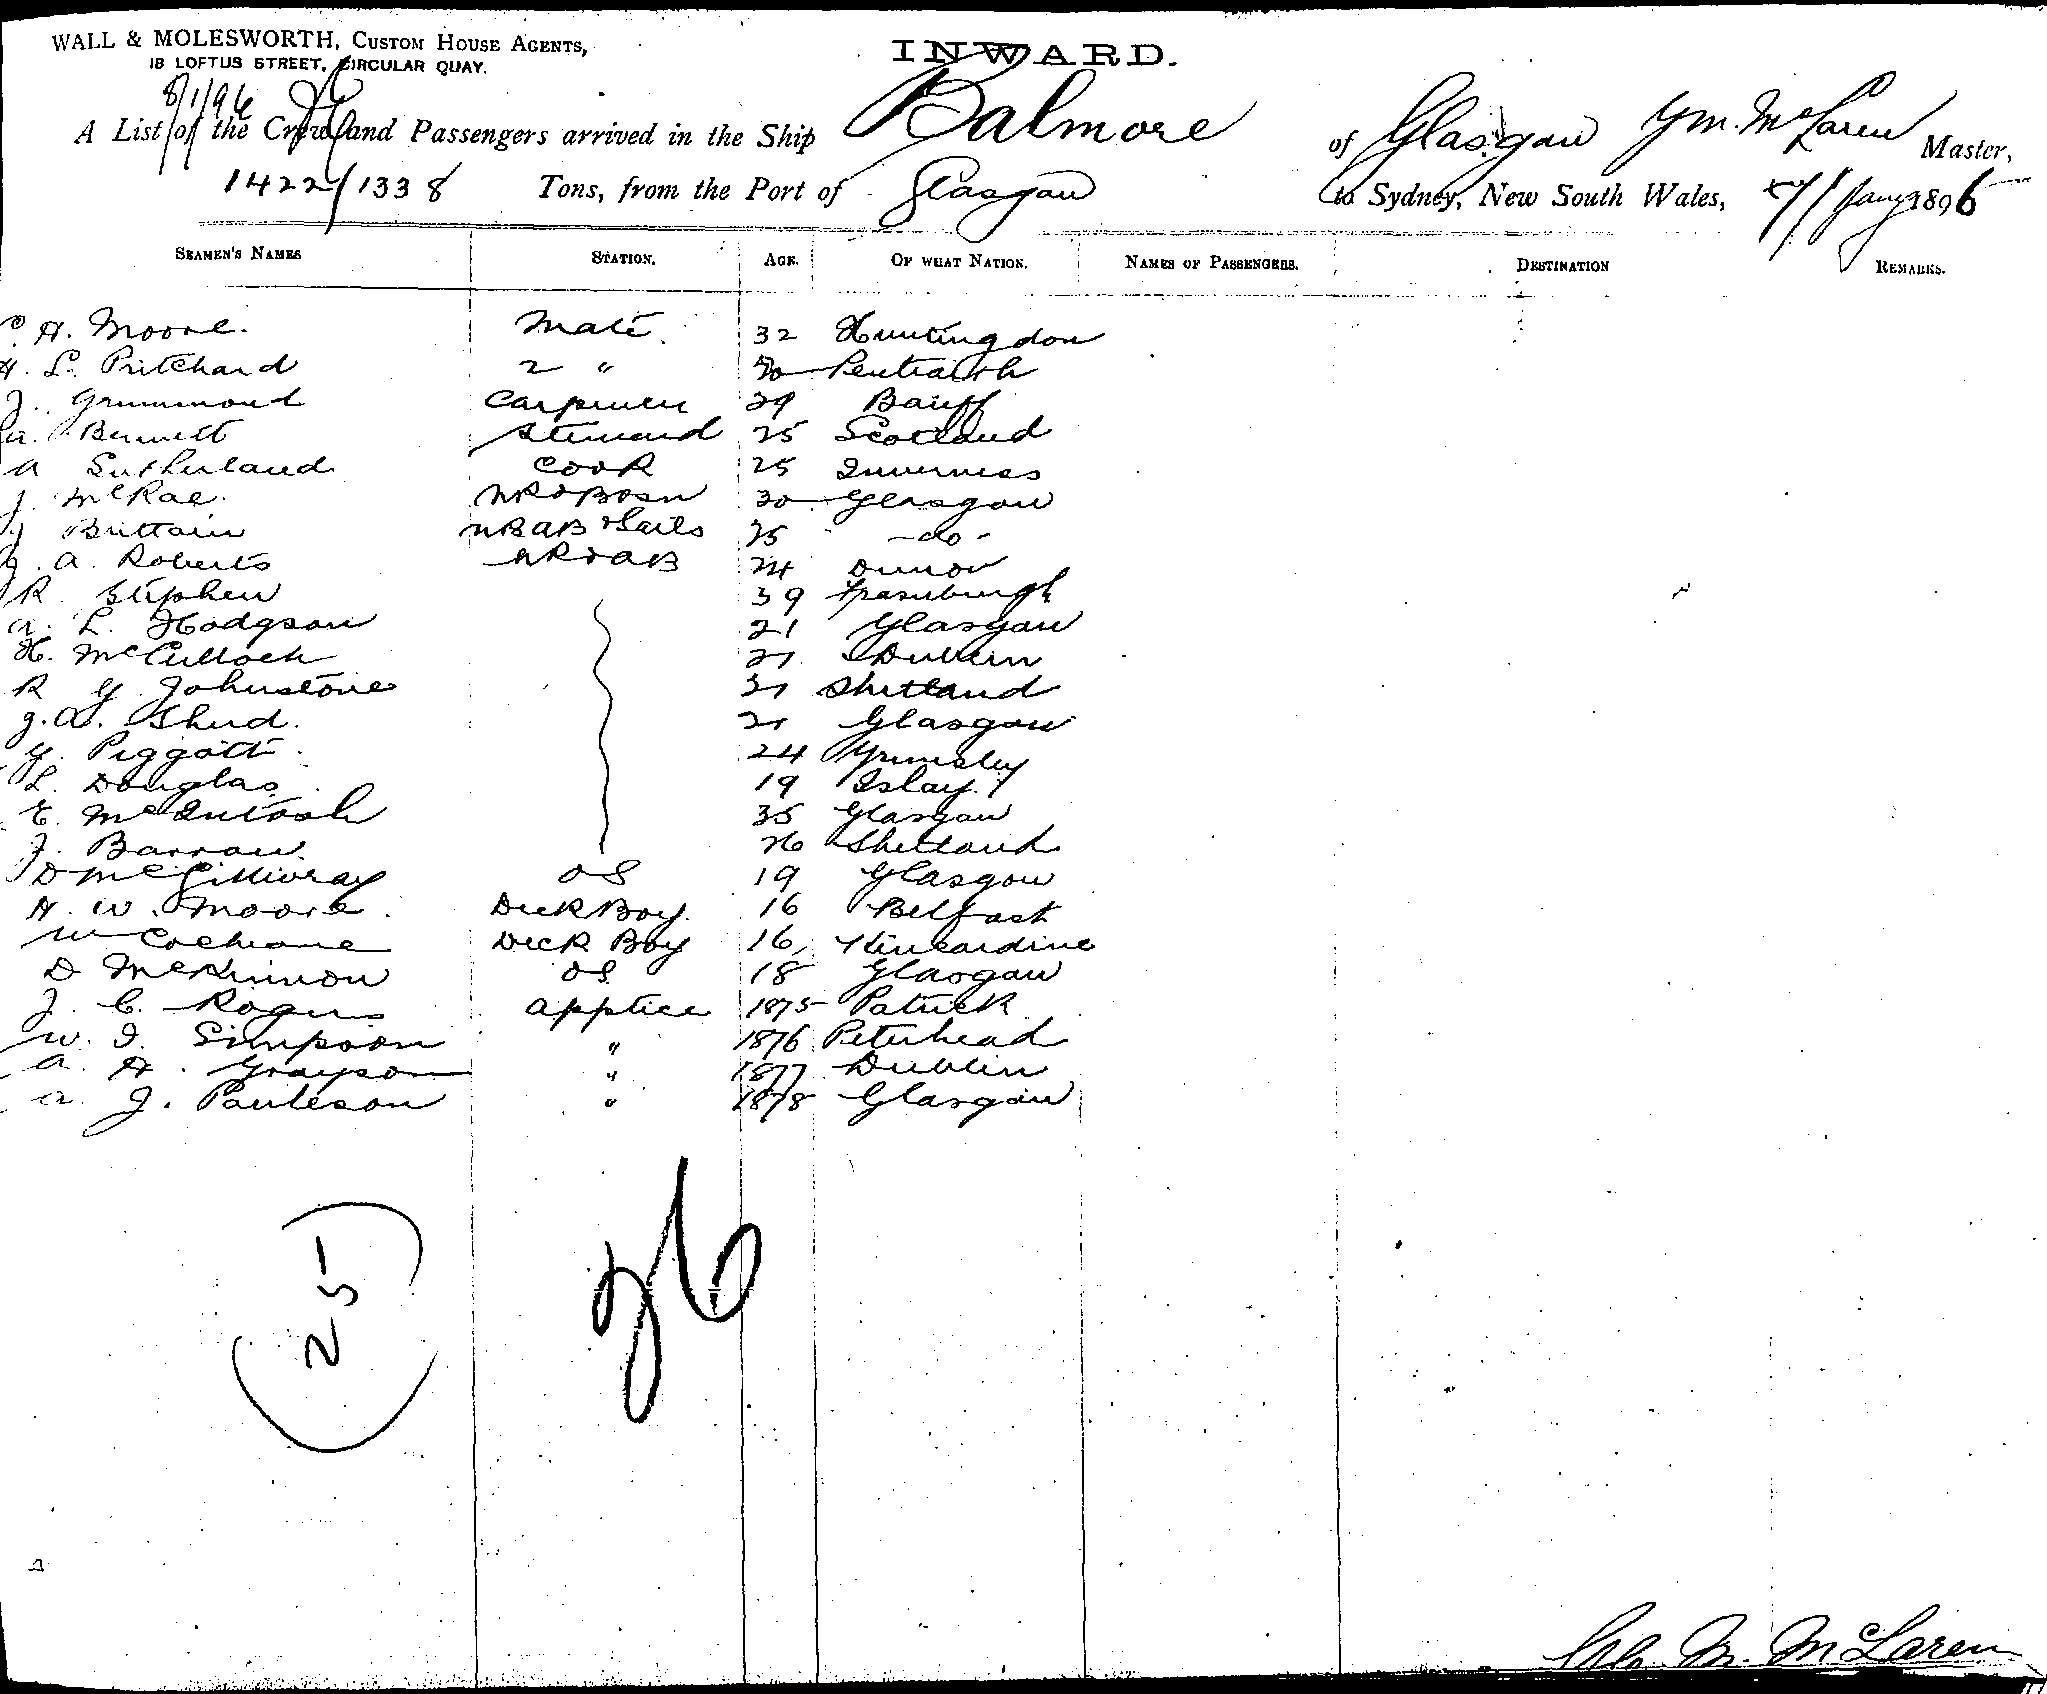 WALL & MOLESWORTH, CUSTOM HOUSE AGENTS,
18 LOFTUS STREET, CIRCULAR QUAY.
INWARD.
8/1/96
A List of the Crew and Passengers arrived in the Ship Balmore of Glasgow Master,
1422/1338 Tons, from the Port of Glasgow to Sydney, New South Wales, 7/ Jany 1896
SEAMEN'S NAMES STATION. AGE. OF WHAT NATION. NAMES OF PASSENGERS. DESTINATION REMARKS.
H. Moore. Mate 32 Huntingdon
H. L. Pritchard 2 " Pentraeth
J. Grummond Carpenter 29 Banff
Bennett Steward 25 Scotland
A Sutherland Cook 25 Inverness
J. McRae Bosn 30 Glasgow
J Brittain AB & Sails 25 -do-
A. Roberts AB 24 Dunoon
R Stephen 39 Fraserburgh
A. L. Hodgson 21 Glasgow
H. McCulloch 21 Dublin
R G Johnstone 21 Shetland
J. A. Shed. 21 Glasgow
G. Piggott 24 Grimsley
L. Douglas 19 Islay
E. McIntosh 35 Glasgow
J. Barrow. 26 Shetland
D McGillivray OS 19 Glasgow
H. W. Moore. Deck Boy. 16 Belfast
W Cochrane Deck Boy 16 Kincardine
D McKinnon OS 18 Glasgow
J. C. Rogers Apptice 1875 Patrick
W. J. Simpson " 1876 Peterhead
A. H. Grayson " 1877 Dublin
A. J. Pauleson " 1878 Glasgow
(25)
26
M. McLaren